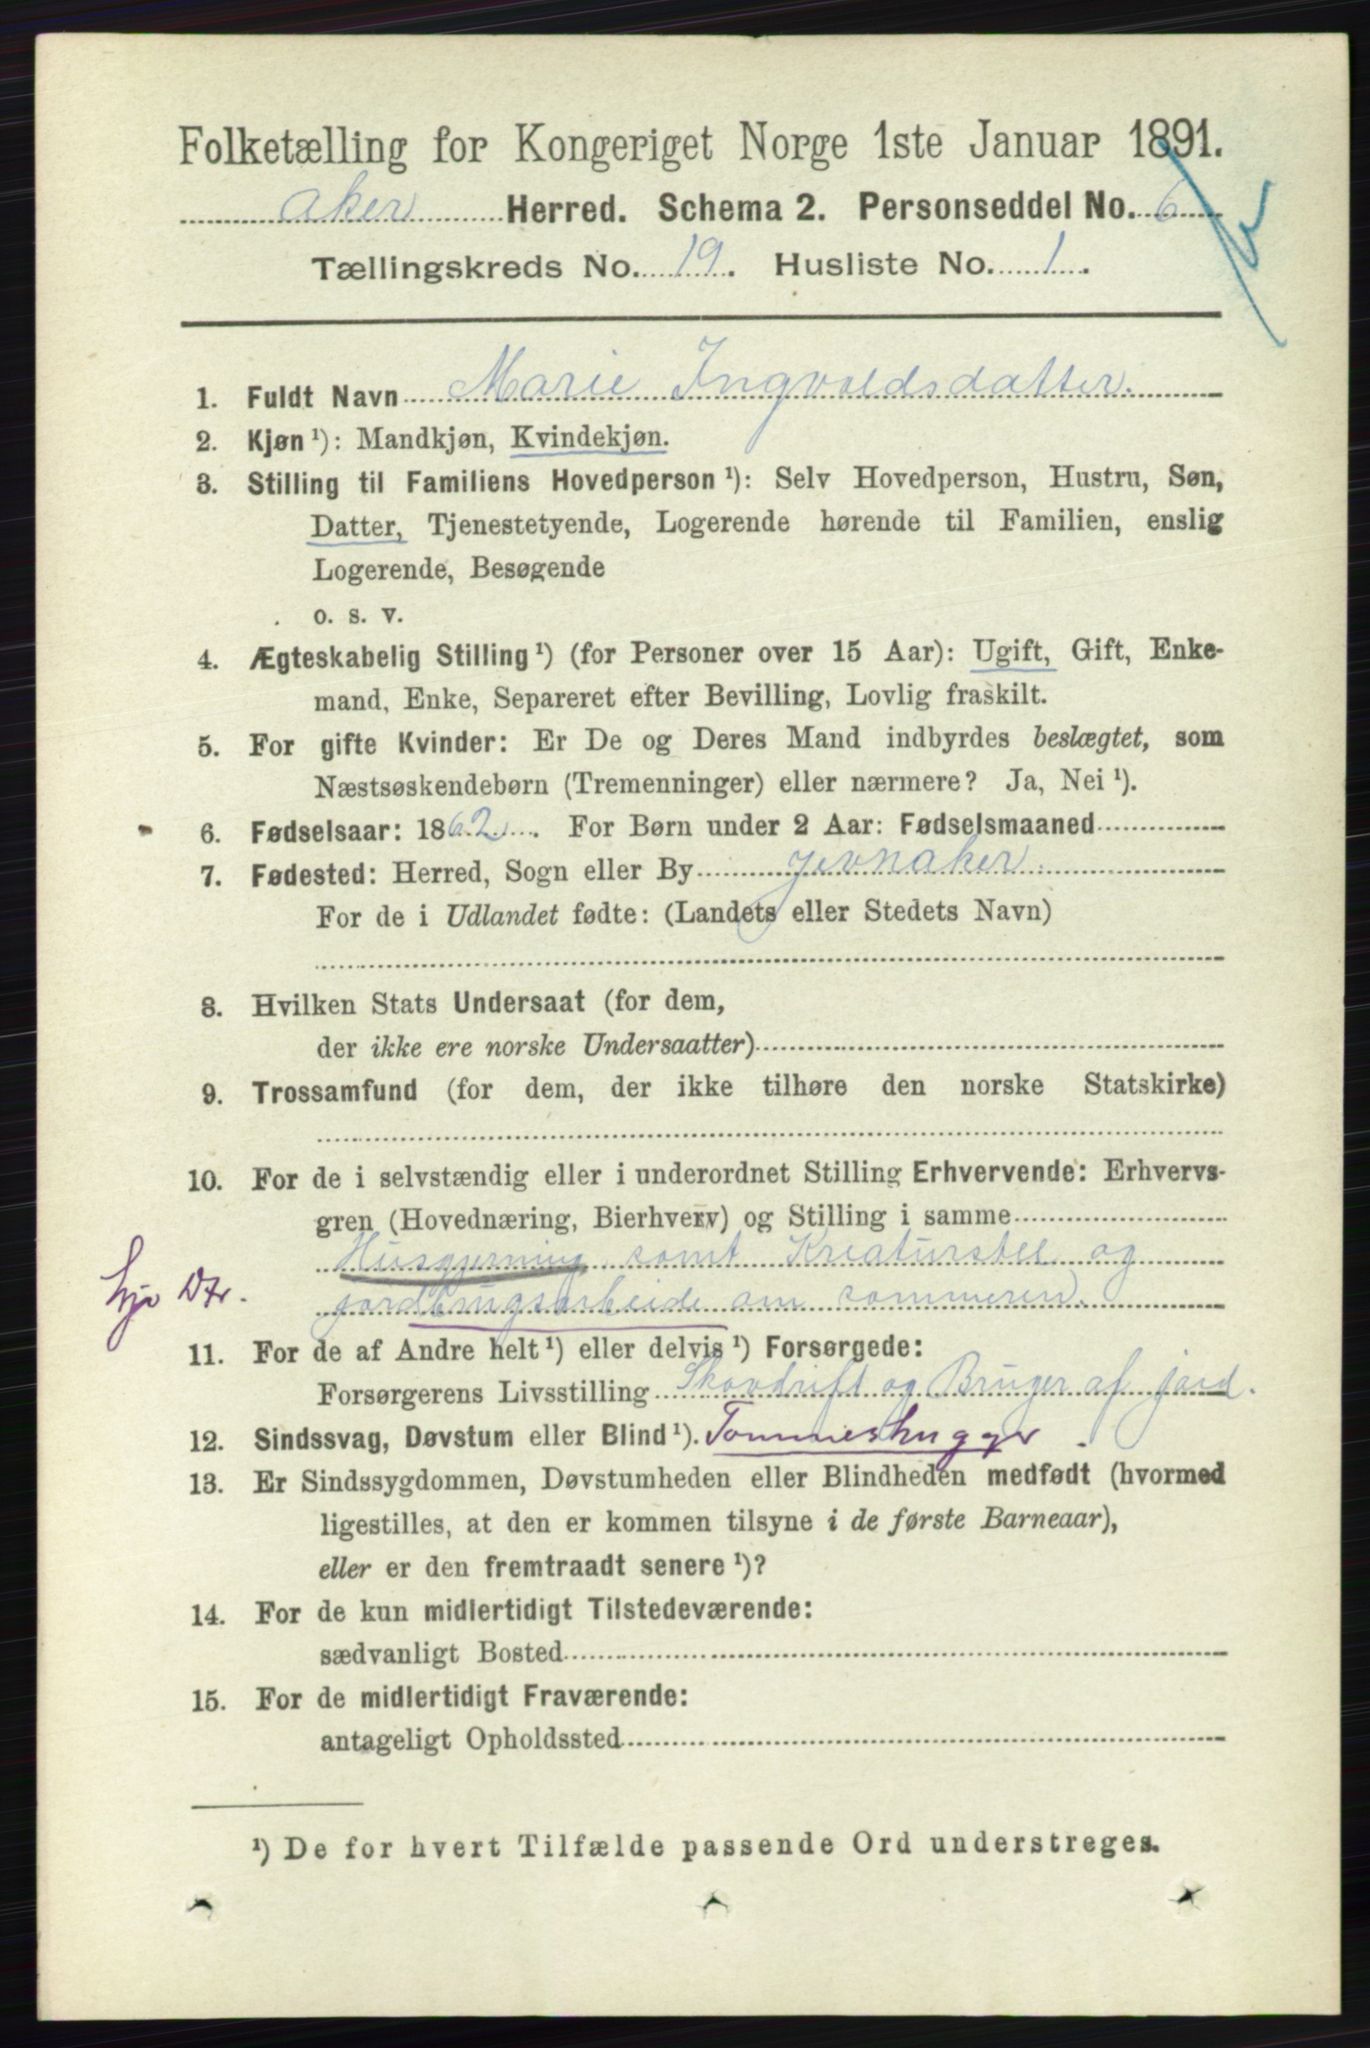 Folketælling for Kongeriget Norge 1ste Januar 1891.
Aker Herred. Schema 2. Personseddel No. 6
Tællingskreds No. 19. Husliste No. 1.
1. Fuldt Navn Marie Ingvoldsdatter.
2. Kjøn ¹): Mandkjøn, Kvindekjøn.
3. Stilling til Familiens Hovedperson ¹): Selv Hovedperson, Hustru, Søn,
Datter, Tjenestetyende, Logerende hørende til Familien, enslig
Logerende, Besøgende
o. s. v.
4. Ægteskabelig Stilling ¹) (for Personer over 15 Aar): Ugift, Gift, Enke-
mand, Enke, Separeret efter Bevilling, Lovlig fraskilt.
5. For gifte Kvinder: Er De og Deres Mand indbyrdes beslægtet, som
Næstsøskendebørn (Tremenninger) eller nærmere? Ja, Nei ¹).
6. Fødselsaar: 1862. For Børn under 2 Aar: Fødselsmaaned
7. Fødested: Herred, Sogn eller By Jevnaker.
For de i Udlandet fødte: (Landets eller Stedets Navn)
8. Hvilken Stats Undersaat (for dem,
der ikke ere norske Undersaatter)
9. Trossamfund (for dem, der ikke tilhøre den norske Statskirke)
10. For de i selvstændig eller i underordnet Stilling Erhvervende: Erhvervs-
gren (Hovednæring, Bierhverv) og Stilling i samme
Husgjerning samt Kreaturstel og
jordbrugsarbeide om sommeren.
11. For de af Andre helt ¹) eller delvis ¹) Forsørgede:
Forsørgerens Livsstilling Skovdrift og Bruger af jord.
12. Sindssvag, Døvstum eller Blind ¹). Tømmerhugger.
13. Er Sindssygdommen, Døvstumheden eller Blindheden medfødt (hvormed
ligestilles, at den er kommen tilsyne i de første Barneaar),
eller er den fremtraadt senere ¹)?
14. For de kun midlertidigt Tilstedeværende:
sædvanligt Bosted
15. For de midlertidigt Fraværende:
antageligt Opholdssted
¹) De for hvert Tilfælde passende Ord understreges.